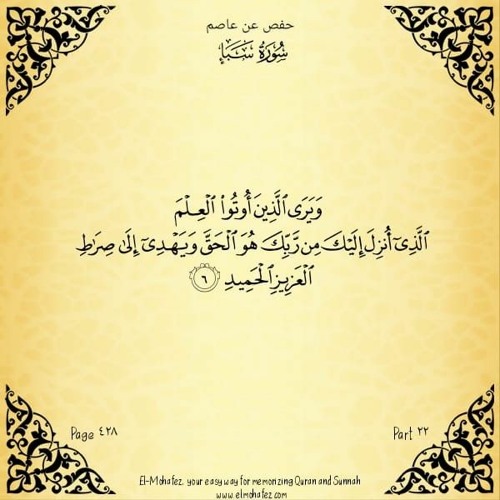 حفص عن عاصم
سُورَةُ سَبَإٍ
وَيَرَى ٱلَّذِينَ أُوتُوا۟ ٱلْعِلْمَ
ٱلَّذِىٓ أُنزِلَ إِلَيْكَ مِن رَّبِّكَ هُوَ ٱلْحَقَّ وَيَهْدِىٓ إِلَىٰ صِرَٰطِ
ٱلْعَزِيزِ ٱلْحَمِيدِ ٦
Page ٤٢٨
Part ٢٢
El-Mohafez, your easy way for memorizing Quran and Sunnah
www.elmohafez.com